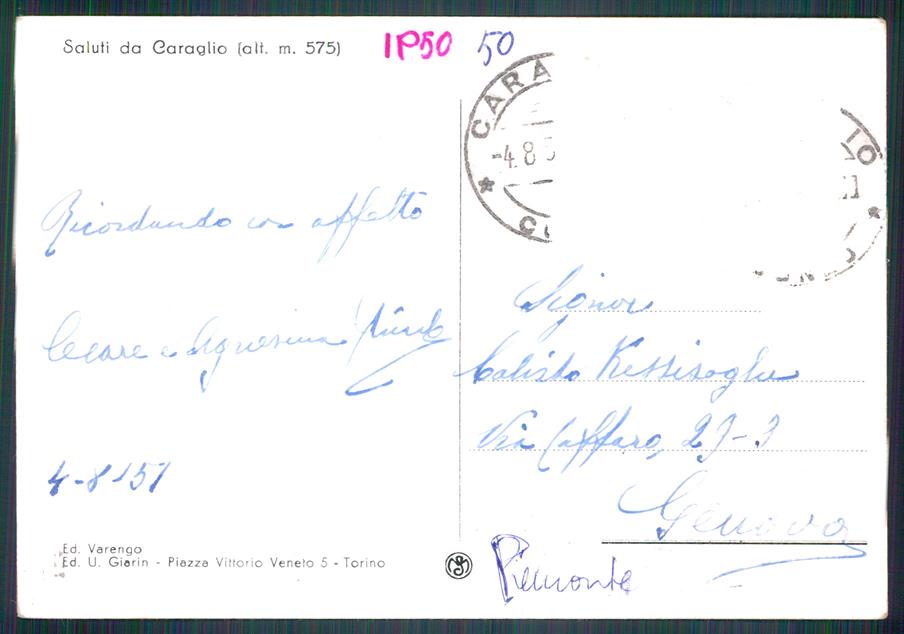 Saluti da Caraglio (alt. m. 575)
IP50 50
CARA
IO
-4.8.5
Ricordando con affetto
Cesare e Agnesina
4-8-'51
Signor
Calisto Kessisoglu
Via Caffaro, 23-3
Genova
Piemonte
Ed. Varengo
Ed. U. Giarin - Piazza Vittorio Veneto 5 - Torino